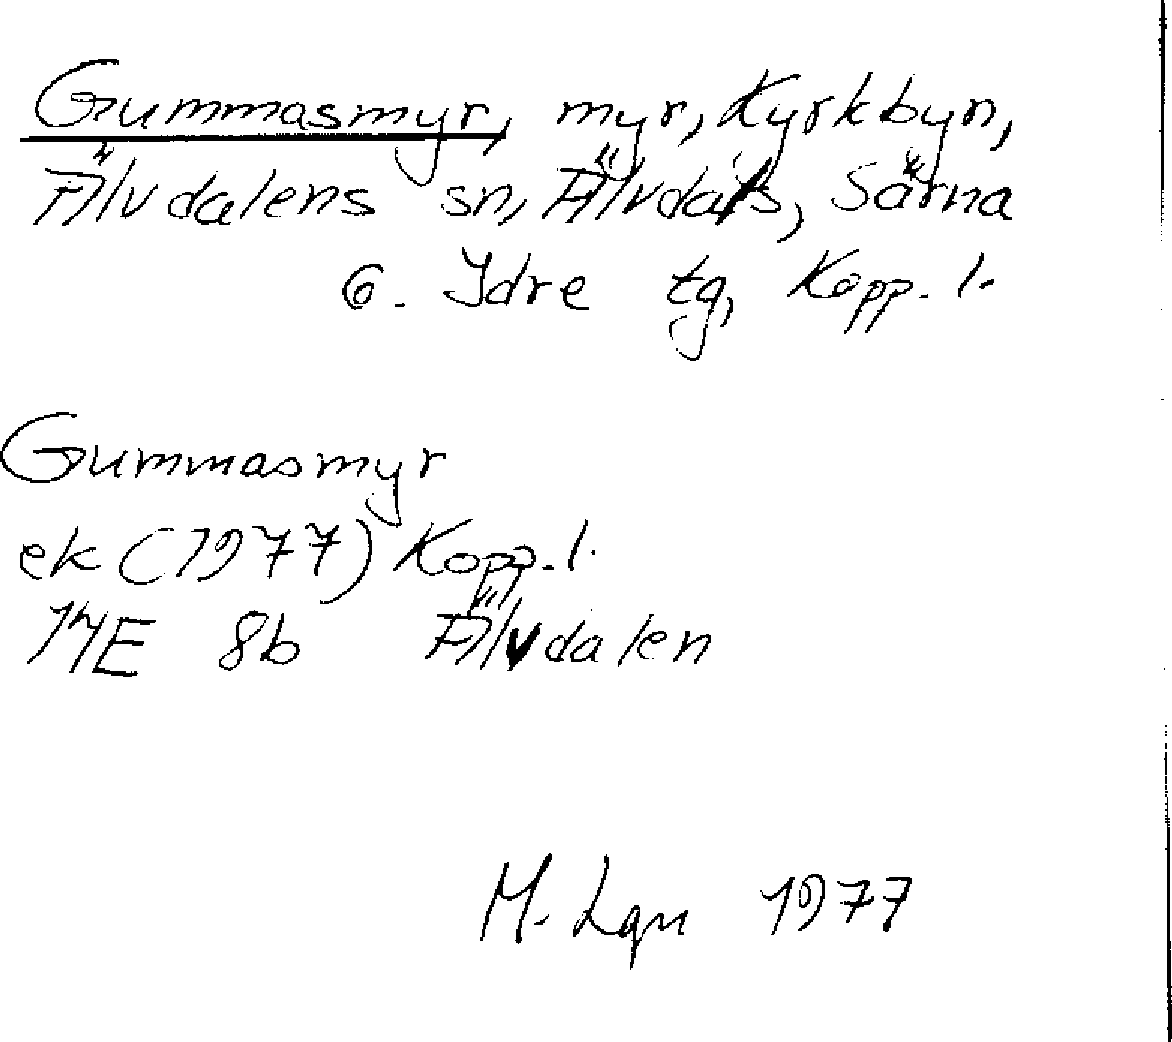 Gummasmyr, myr, Kyrkbyn,
Älvdalens sn, Älvdals, Särna
o. Idre tg, Kopp. l.
Gummasmyr
ek (1977) Kopp. l.
14E 8b Älvdalen
M. Lgn 1977